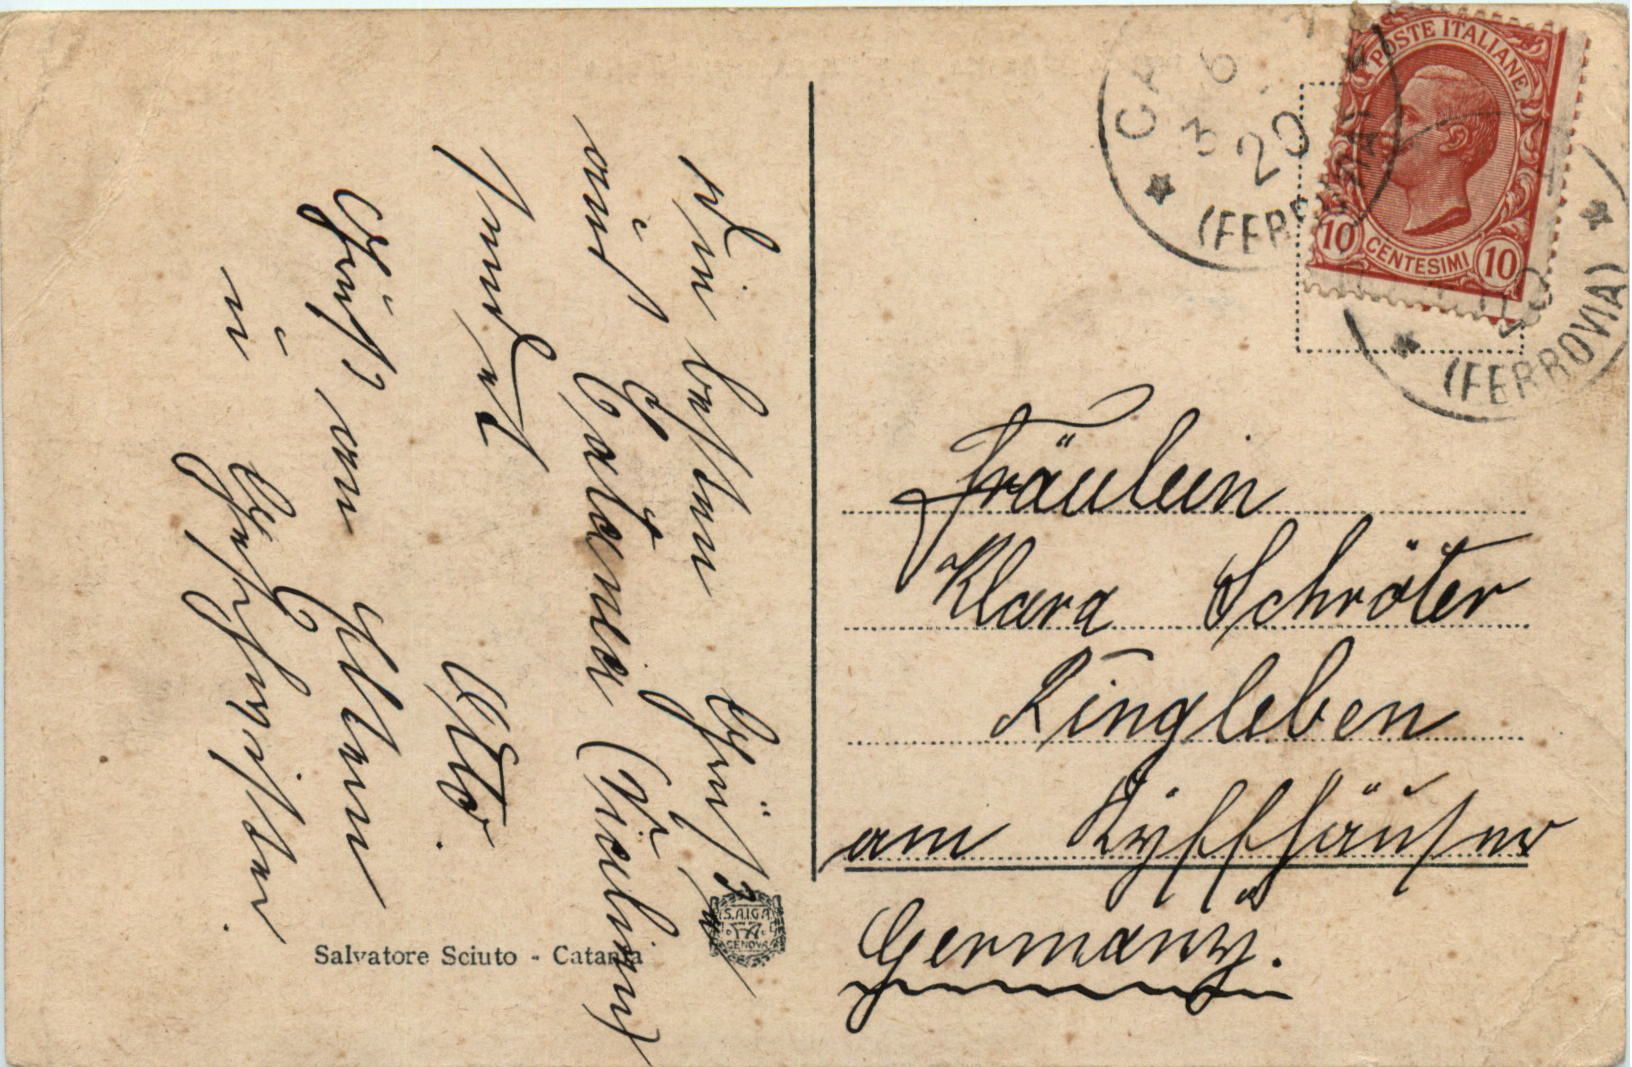 Die besten Grüße
aus Catania (Sizilien)
sendet
Otto.
Gruß an Eltern
u Geschwister.
Salvatore Sciuto - Catania
S.A.I.G.A.
GENOVA
POSTE ITALIANE
10 CENTESIMI 10
CA
6
3 20
(FERROVIA)
(FERROVIA)
Fräulein
Klara Schröter
Ringleben
am Kyffhäuser
Germany.